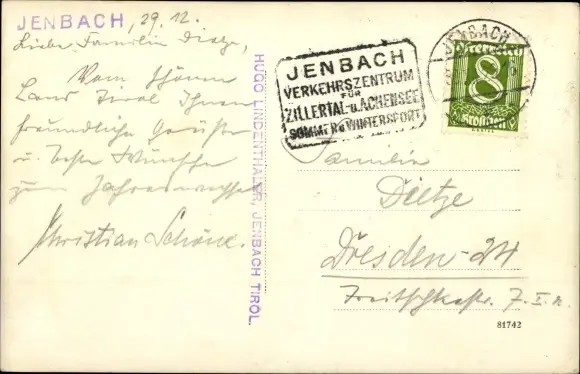 JENBACH, 29.12.
Liebe Familie Dietze,
Vom schönen
Land Tirol Ihnen
freundliche Grüße
u. beste Wünsche
zum Jahreswechsel
Christian Schöne.
HUGO LINDENTHALER, JENBACH TIROL.
JENBACH
VERKEHRSZENTRUM
FÜR
ZILLERTAL-u.ACHENSEE
SOMMER u WINTERSPORT
JENBACH
8
Familie
Dietze
Dresden-24
7. I. r.
81742